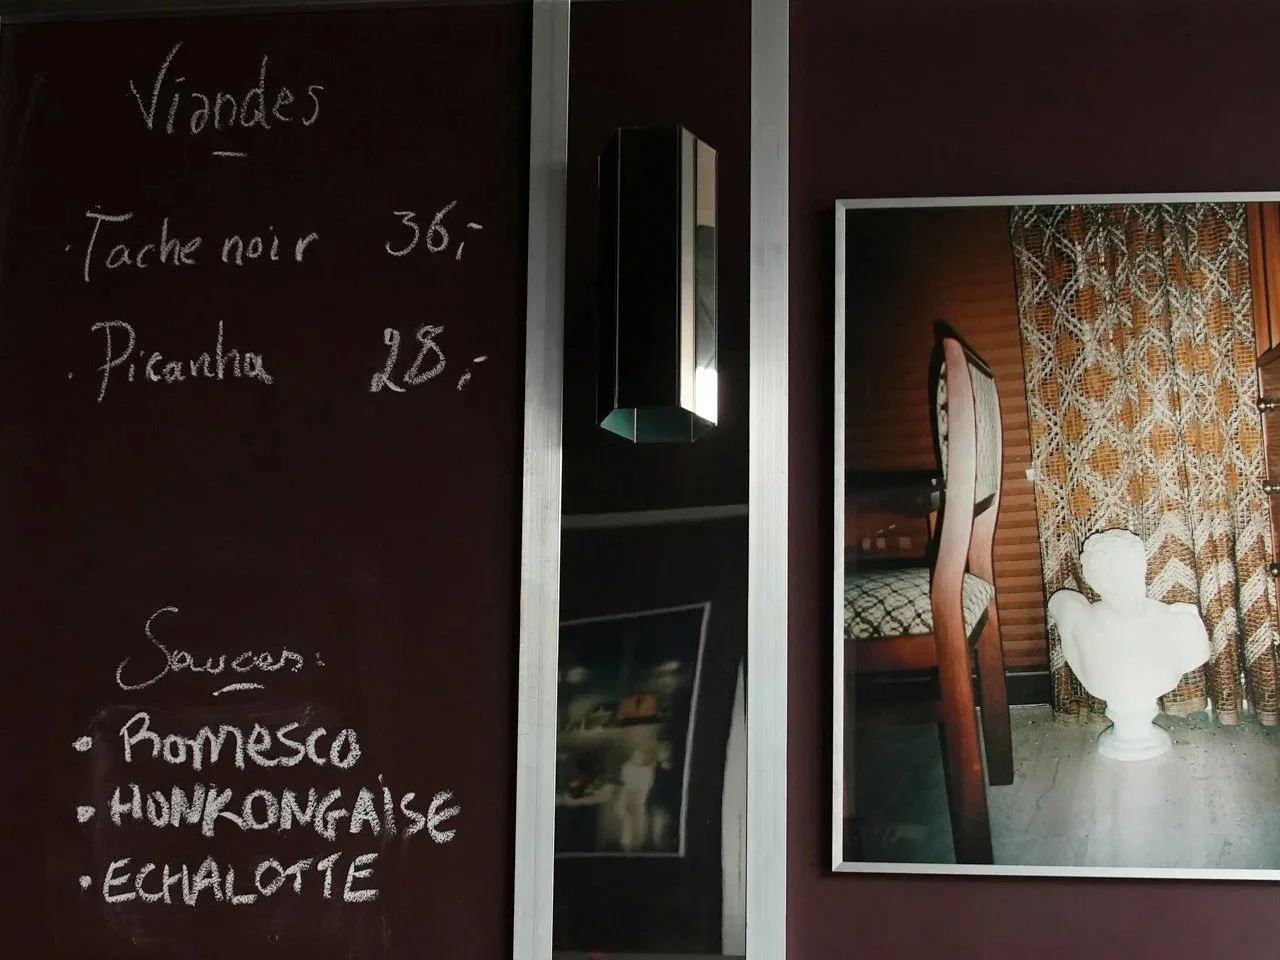 Viandes
· Tache noir 36,-
· Picanha 28,-
Sauces:
• Romesco
• HONKONGAISE
• ECHALOTTE